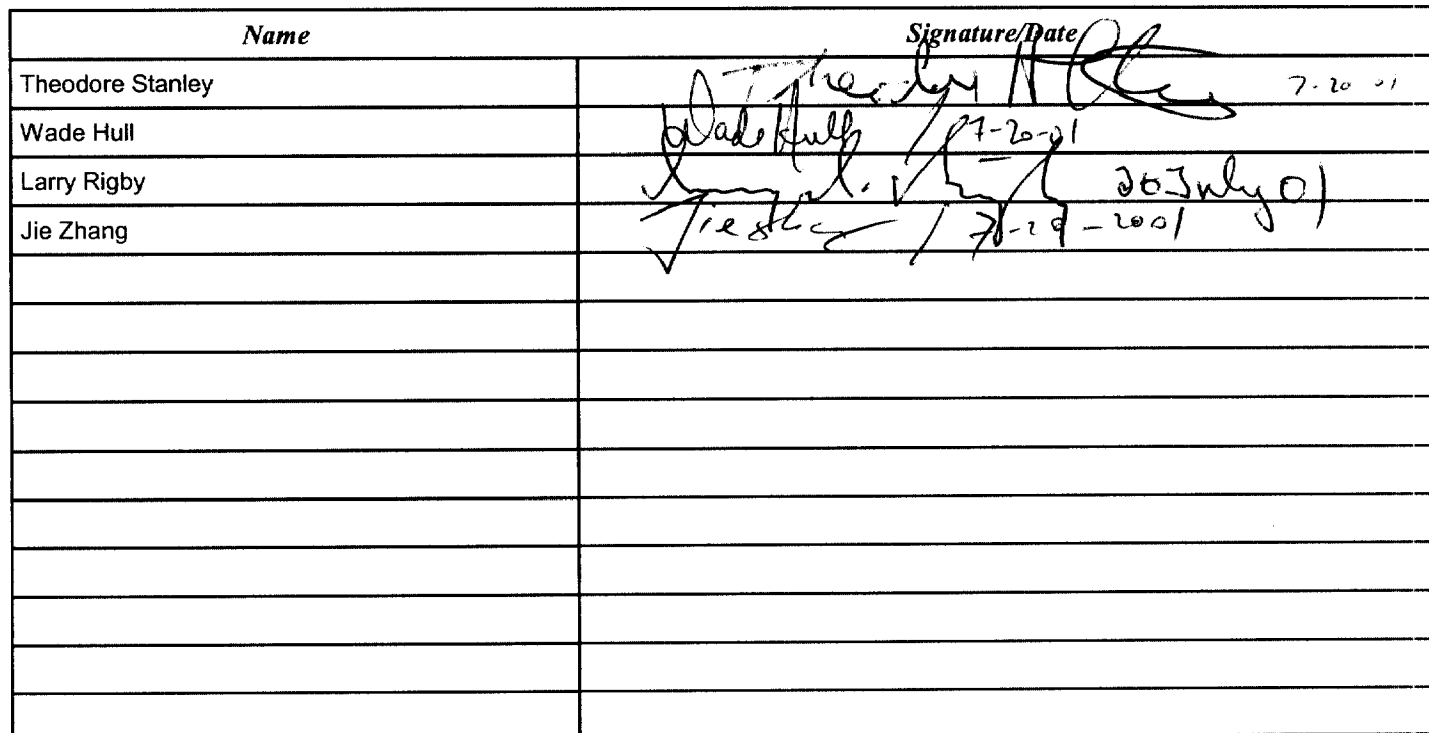 Name Signature/Date
Theodore Stanley 7-20-01
Wade Hull Wade Hull 7-20-01
Larry Rigby 20 July 01
Jie Zhang Jie Zhang / 7-20-2001